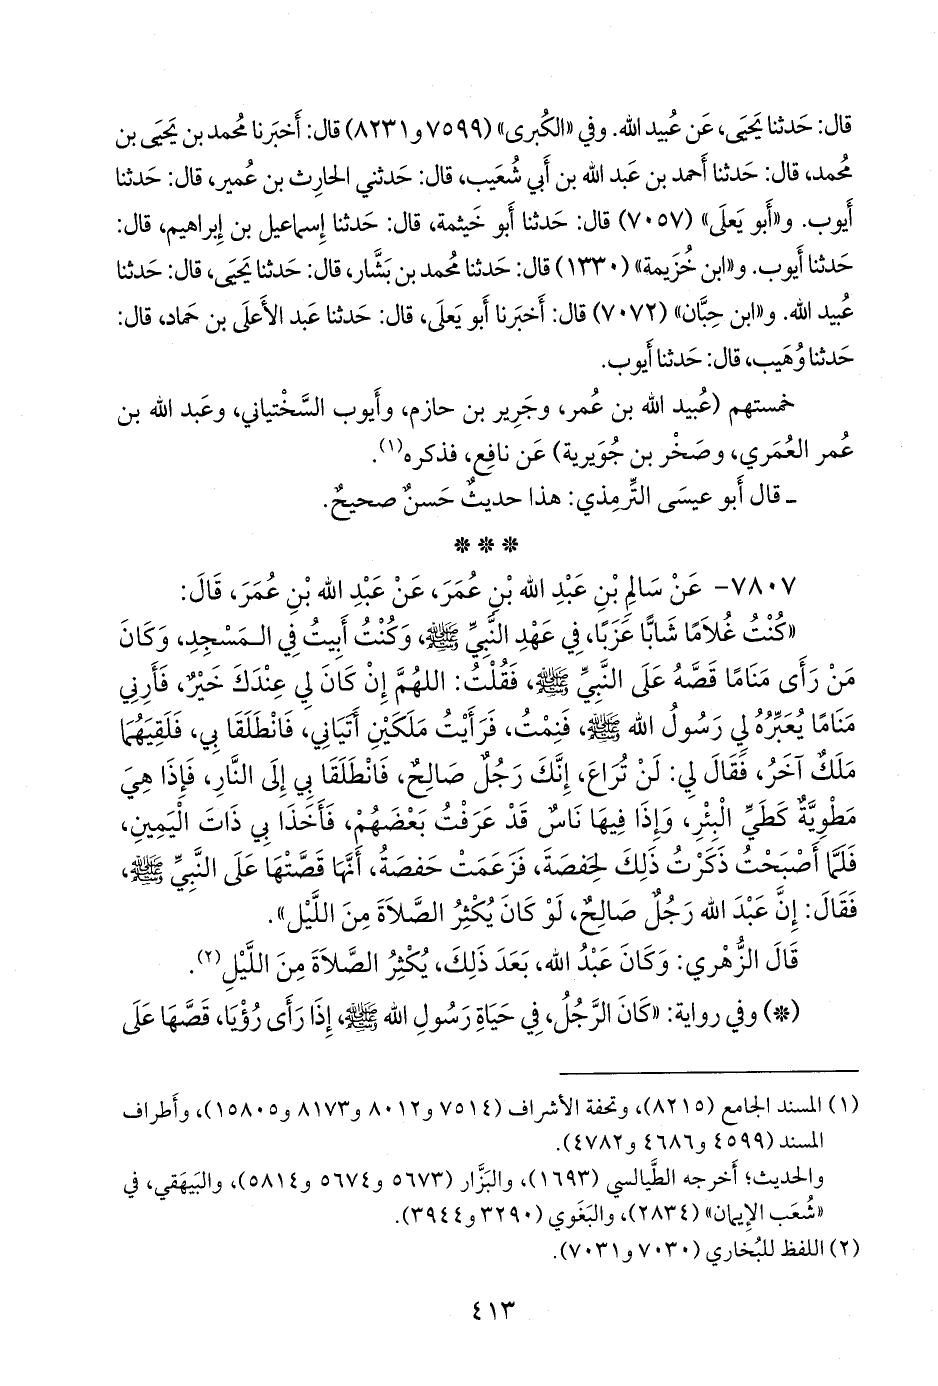 قال: حَدثنا يَحيَى، عَن عُبيد الله. وفي «الكُبرى» (٧٥٩٩ و٨٢٣١) قال: أَخبَرنا مُحمد بن يَحيَى بن
مُحمد، قال: حَدثنا أَحمد بن عَبد الله بن أَبي شُعَيب، قال: حَدثني الحارِث بن عُمير، قال: حَدثنا
أَيوب. و«أَبو يَعلَى» (٧٠٥٧) قال: حَدثنا أَبو خَيثمة، قال: حَدثنا إِسماعيل بن إِبراهيم، قال:
حَدثنا أَيوب. و«ابن خُزيمة» (١٣٣٠) قال: حَدثنا مُحمد بن بَشَّار، قال: حَدثنا يَحيَى، قال: حَدثنا
عُبيد الله. و«ابن حِبَّان» (٧٠٧٢) قال: أَخبَرنا أَبو يَعلَى، قال: حَدثنا عَبد الأَعلى بن حَماد، قال:
حَدثنا وُهَيب، قال: حَدثنا أَيوب.
خمستهم (عُبيد الله بن عُمر، وجَرير بن حازم، وأَيوب السَّخْتياني، وعَبد الله بن
عُمر العُمَري، وصَخْر بن جُوَيرية) عَن نافِع، فذكره(١).
ـ قال أَبو عيسَى التِّرمِذي: هذا حديثٌ حَسنٌ صحيحٌ.
* * *
٧٨٠٧- عَنْ سَالِمِ بْنِ عَبْدِ الله بْنِ عُمَرَ، عَنْ عَبْدِ الله بْنِ عُمَرَ، قَالَ:
«كُنْتُ غُلَامًا شَابًّا عَزَبًا، فِي عَهْدِ النَّبِيِّ ﷺ، وَكُنْتُ أَبِيتُ فِي الْمَسْجِدِ، وَكَانَ
مَنْ رَأَى مَنَامًا قَصَّهُ عَلَى النَّبِيِّ ﷺ، فَقُلْتُ: اللهُمَّ إِنْ كَانَ لِي عِنْدَكَ خَيْرٌ، فَأَرِنِي
مَنَامًا يُعَبِّرُهُ لِي رَسُولُ الله ﷺ، فَنِمْتُ، فَرَأَيْتُ مَلَكَيْنِ أَتَيَانِي، فَانْطَلَقَا بِي، فَلَقِيَهُمَا
مَلَكٌ آخَرُ، فَقَالَ لِي: لَنْ تُرَاعَ، إِنَّكَ رَجُلٌ صَالِحٌ، فَانْطَلَقَا بِي إِلَى النَّارِ، فَإِذَا هِيَ
مَطْوِيَّةٌ كَطَيِّ الْبِئْرِ، وَإِذَا فِيهَا نَاسٌ قَدْ عَرَفْتُ بَعْضَهُمْ، فَأَخَذَا بِي ذَاتَ الْيَمِينِ،
فَلَمَّا أَصْبَحْتُ ذَكَرْتُ ذَلِكَ لِحَفصَةَ، فَزَعَمَتْ حَفصَةُ، أَنَّهَا قَصَّتْهَا عَلَى النَّبِيِّ ﷺ،
فَقَالَ: إِنَّ عَبْدَ الله رَجُلٌ صَالِحٌ، لَوْ كَانَ يُكْثِرُ الصَّلاَةَ مِنَ اللَّيْلِ».
قَالَ الزُّهْرِي: وَكَانَ عَبْدُ الله، بَعَدَ ذَلِكَ، يُكْثِرُ الصَّلاَةَ مِنَ اللَّيْلِ(٢).
(*) وفي رواية: «كَانَ الرَّجُلُ، فِي حَيَاةِ رَسُولِ الله ﷺ، إِذَا رَأَى رُؤْيَا، قَصَّهَا عَلَى
(١) المسند الجامع (٨٢١٥)، وتحفة الأشراف (٧٥١٤ و٨٠١٢ و٨١٧٣ و١٥٨٠٥)، وأَطراف
المسند (٤٥٩٩ و٤٦٨٦ و٤٧٨٢).
والحديث؛ أَخرجه الطَّيالسي (١٦٩٣)، والبَزَّار (٥٦٧٣ و٥٦٧٤ و٥٨١٤)، والبَيهَقي، في
«شُعَب الإِيمان» (٢٨٣٤)، والبَغَوي (٣٢٩٠ و٣٩٤٤).
(٢) اللفظ للبُخاري (٧٠٣٠ و٧٠٣١).
٤١٣